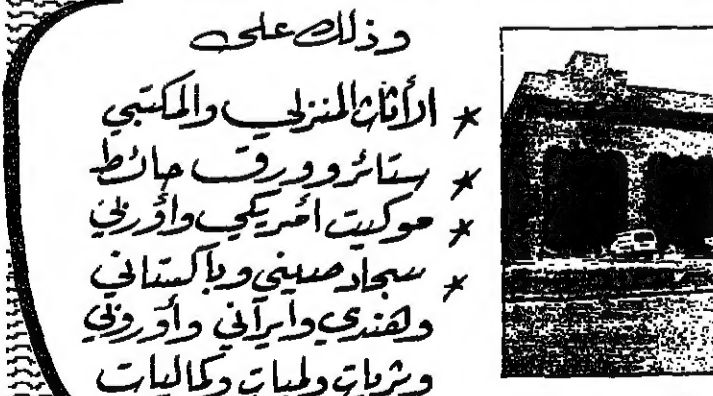 وذلك على
* الأثاث المنزلي والمكتبي
* ستائر وورق حائط
* موكيت أمريكي وأوربي
* سجاد صيني وباكستاني
وهندي وايرآني وأوروبي
وثريات ولمبات وكماليات